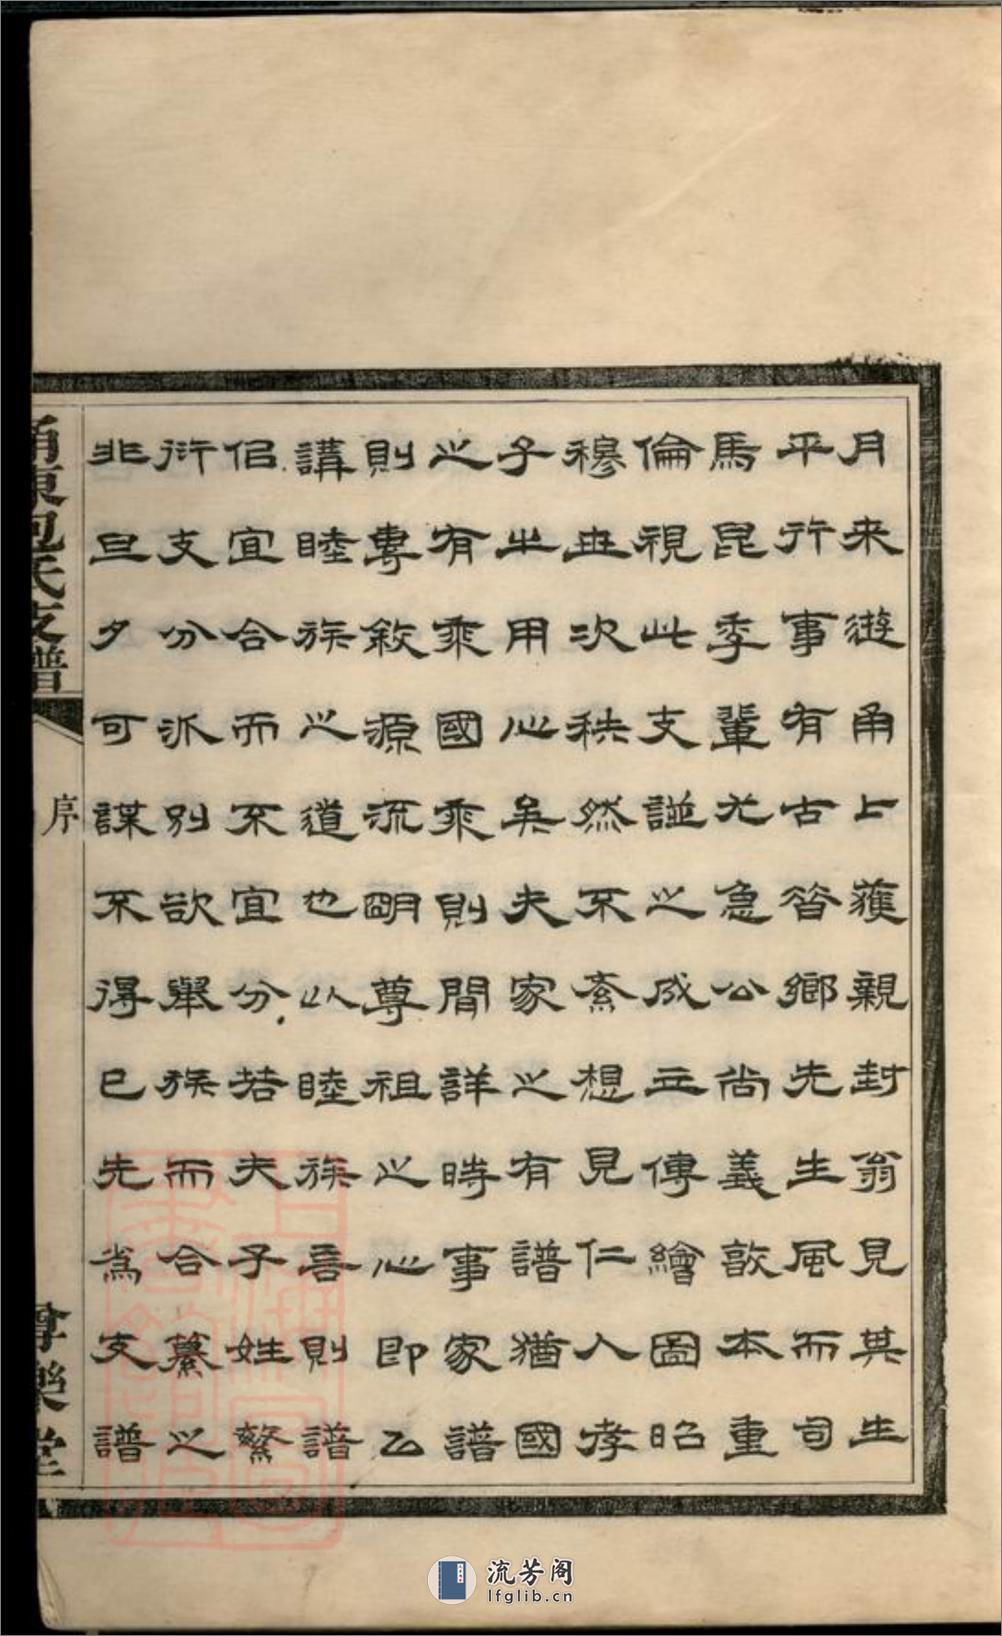 月来遊甬上蒦親封翁見其生
平行事有古昝鄉先生風而司
馬昆季輩尤急公尚義敦本重
倫視此支譜之成立傳繪圖昭
穆世次秩然不紊想見仁人孝
子之用心矣夫家之有譜猶國
之有乘國乘則間詳時事家譜
則專敘源流明尊祖之心即乙
講睦族之道也以睦族言則譜
侣宜合而不宜分若夫子姓繁
衍支分派別欲舉族而合纂之
非旦夕可謀不得已先爲支譜
甬東包氏支譜
序
會樂堂
流芳阁
lfglib.cn